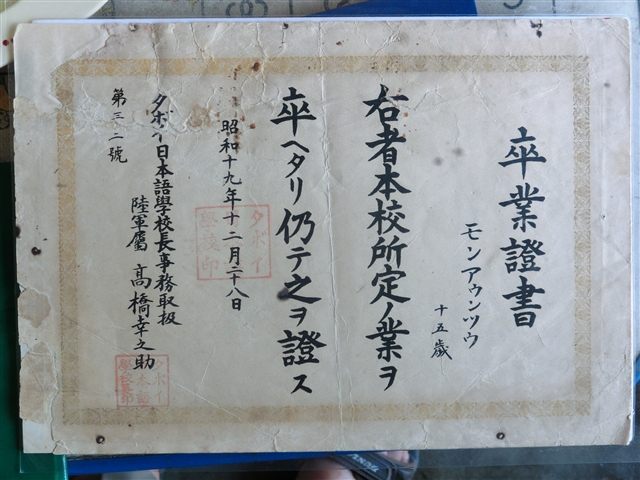 卒業證書
モンアウンツウ
十五歳
右者本校所定ノ業ヲ
卒ヘタリ仍テ之ヲ證ス
昭和十九年十二月二十八日
タボイ日本語學校長事務取扱
陸軍屬 高橋幸之助
第三二號
タボイ